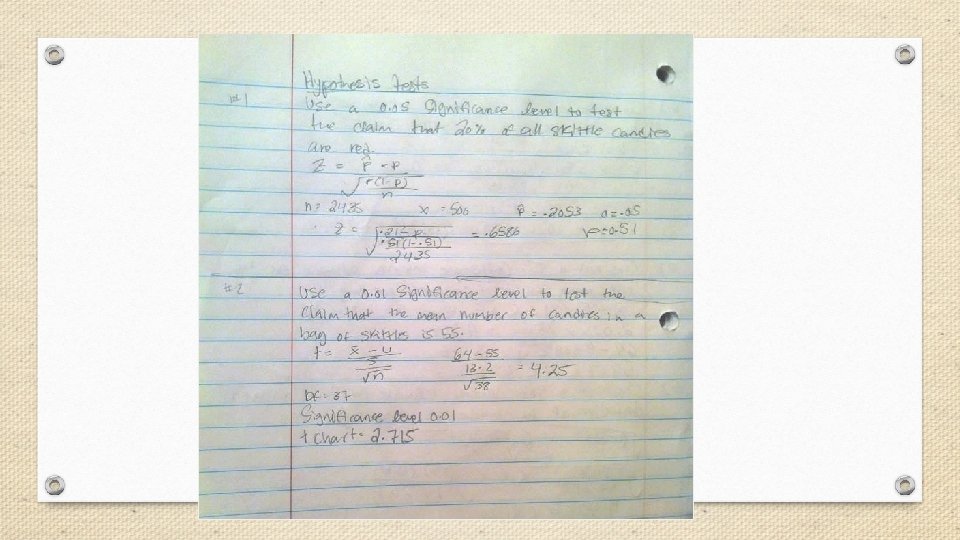 Hypothesis tests
#1 Use a 0.05 Significance level to test
the claim that 20% of all skittle candies
are red.
z = p̂ - p
√ (1-p)
n
n = 2435 x = 500 p̂ = .2053 α = .05
z = = .6586 p = 0.51
√ .51(1-.51)
2435
#2 Use a 0.01 Significance level to test the
Claim that the mean number of candies in a
bag of skittles is 55.
t = x̄ - u 64 - 55
s 13.2 = 4.25
√n √38
Df = 37
Significance level 0.01
t chart = 2.715